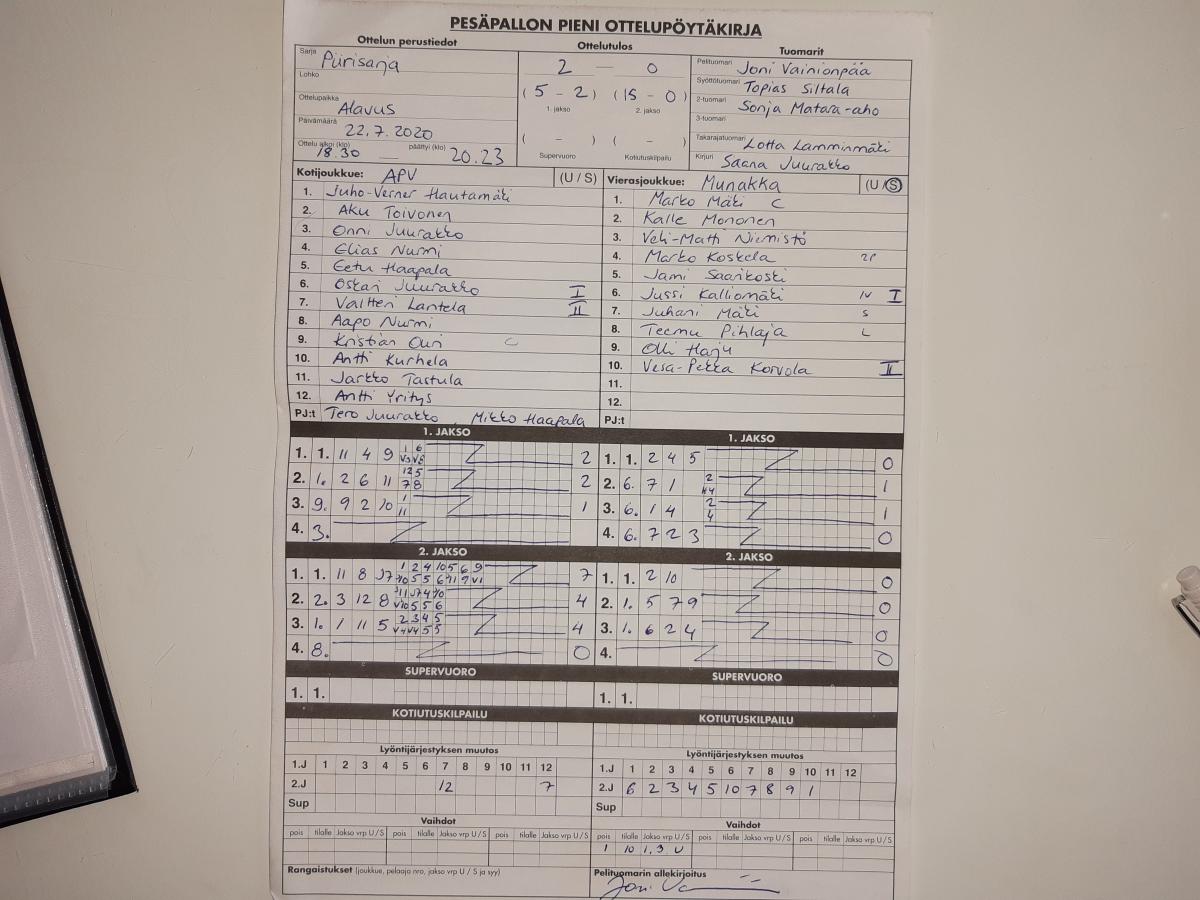 PESÄPALLON PIENI OTTELUPÖYTÄKIRJA
Ottelun perustiedot
Sarja Piirisarja
Lohko
Ottelupaikka Alavus
Päivämäärä 22.7.2020
Ottelu alkoi (klo) 18.30 — päättyi (klo) 20.23
Ottelutulos
2 — 0
(5 - 2) (15 - 0)
1. jakso 2. jakso
( - ) ( - )
Supervuoro Kotiutuskilpailu
Tuomarit
Pelituomari Joni Vainionpää
Syöttötuomari Topias Siltala
2-tuomari Sonja Matara-aho
3-tuomari
Takarajatuomari Lotta Lamminmäki
Kirjuri Saana Juurakko
Kotijoukkue: APV (U / S)
1. Juho-Verner Hautamäki
2. Aku Toivonen
3. Onni Juurakko
4. Elias Nurmi
5. Eetu Haapala
6. Oskari Juurakko I
7. Valtteri Lantela II
8. Aapo Nurmi
9. Kristian Ouri C
10. Antti Kurhela
11. Jarkko Tastula
12. Antti Yritys
PJ:t Tero Juurakko, Mikko Haapala
Vierasjoukkue: Munakka (U / S)
1. Marko Mäki C
2. Kalle Mononen
3. Veli-Matti Niemistö
4. Marko Koskela 2P
5. Jami Saarikoski
6. Jussi Kalliomäki IV I
7. Juhani Mäki S
8. Teemu Pihlaja L
9. Olli Harju
10. Vesa-Pekka Korvola II
11.
12.
PJ:t
1. JAKSO
1. 1. 11 4 9 1 6 V3 V8 2
2. 1. 2 6 11 12 5 7 8 2
3. 9. 9 2 10 1 11 1
4. 3.
1. JAKSO
1. 1. 2 4 5 0
2. 6. 7 1 2 1
3. 6. 1 4 2 4 1
4. 6. 7 2 3 0
2. JAKSO
1. 1. 11 8 J7 1 2 4 10 5 6 9 7
2. 2. 3 12 8 4
3. 1. 1 11 5 2 3 4 5 V4 V4 5 5 4
4. 8. 0
2. JAKSO
1. 1. 2 10 0
2. 1. 5 7 9 0
3. 1. 6 2 4 0
4. 0
SUPERVUORO
1. 1.
SUPERVUORO
1. 1.
KOTIUTUSKILPAILU
KOTIUTUSKILPAILU
Lyöntijärjestyksen muutos
1.J 1 2 3 4 5 6 7 8 9 10 11 12
2.J 12 7
Sup
Lyöntijärjestyksen muutos
1.J 1 2 3 4 5 6 7 8 9 10 11 12
2.J 6 2 3 4 5 10 7 8 9 1
Sup
Vaihdot
pois tilalle Jakso vrp U / S pois tilalle Jakso vrp U / S pois tilalle Jakso vrp U / S
Vaihdot
pois tilalle Jakso vrp U / S pois tilalle Jakso vrp U / S pois tilalle Jakso vrp U / S
1 10 1,3 U
Rangaistukset (joukkue, pelaaja nro, jakso vrp U / S ja syy)
Pelituomarin allekirjoitus
Joni